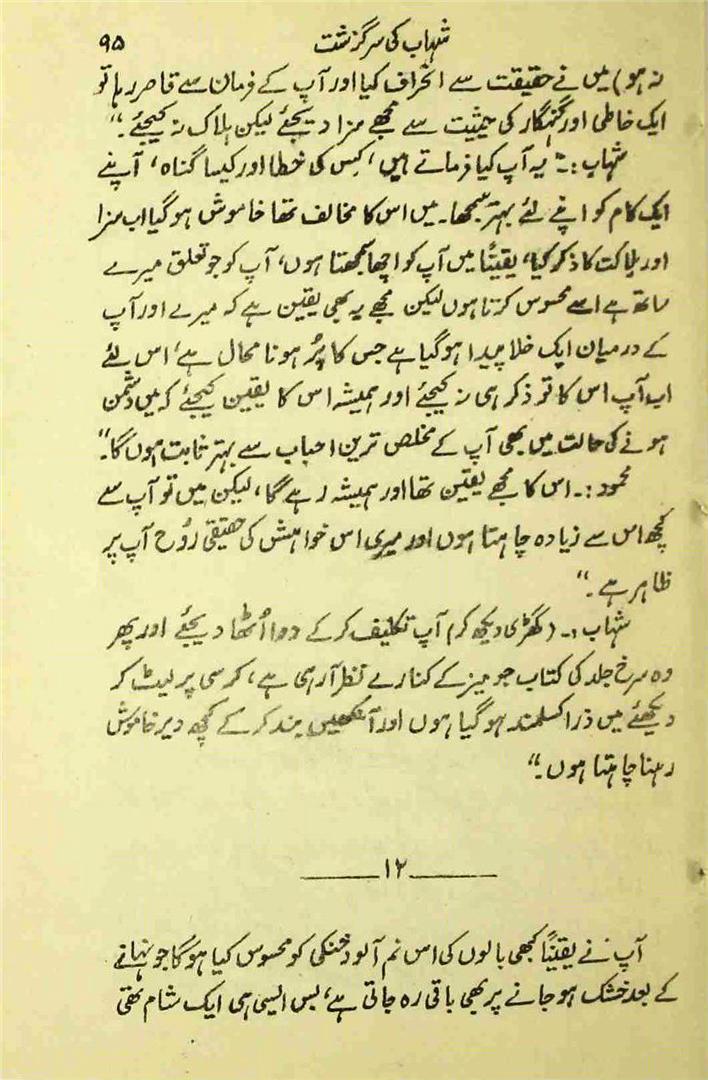 شہاب کی سرگزشت ۹۵
نہ ہو) میں نے حقیقت سے انحراف کیا اور آپ کے فرمان سے قاصر رہا تو
ایک خاطی اور گنہگار کی حیثیت سے مجھے سزا دیجئے لیکن ہلاک نہ کیجئے۔"
شہاب :۔ "یہ آپ کیا فرماتے ہیں، کس کی خطا اور کیسا گناہ، آپنے
ایک کام کو اپنے لئے بہتر سمجھا۔ میں اس کا مخالف تھا خاموش ہو گیا اب سزا
اور ہلاکت کا ذکر کیا، یقیناً میں آپ کو اچھا سمجھتا ہوں، آپ کو جو تعلق میرے
ساتھ ہے اسے محسوس کرتا ہوں لیکن مجھے یہ بھی یقین ہے کہ میرے اور آپ
کے درمیان ایک خلا پیدا ہو گیا ہے جس کا پُر ہونا محال ہے، اس لئے
اب آپ اس کا تو ذکر ہی نہ کیجئے اور ہمیشہ اس کا یقین کیجئے کہ میں دشمن
ہونے کی حالت میں بھی آپ کے مخلص ترین احباب سے بہتر ثابت ہوں گا۔"
محمود :۔ اس کا مجھے یقین تھا اور ہمیشہ رہے گا، لیکن میں تو آپ سے
کچھ اس سے زیادہ چاہتا ہوں اور میری اس خواہش کی حقیقی رُوح آپ پر
ظاہر ہے۔"
شہاب :۔ (گھڑی دیکھ کر) آپ تکلیف کر کے دوا اُٹھا دیجئے اور پھر
وہ سرخ جلد کی کتاب جو میز کے کنارے نظر آرہی ہے، کرسی پر لیٹ کر
دیکھئے میں ذرا کسلمند ہو گیا ہوں اور آنکھیں بند کر کے کچھ دیر خاموش
رہنا چاہتا ہوں۔"
۱۲
آپ نے یقیناً کبھی بالوں کی اس نم آلود خنکی کو محسوس کیا ہو گا جو نہانے
کے بعد خشک ہو جانے پر بھی باقی رہ جاتی ہے، بس ایسی ہی ایک شام تھی